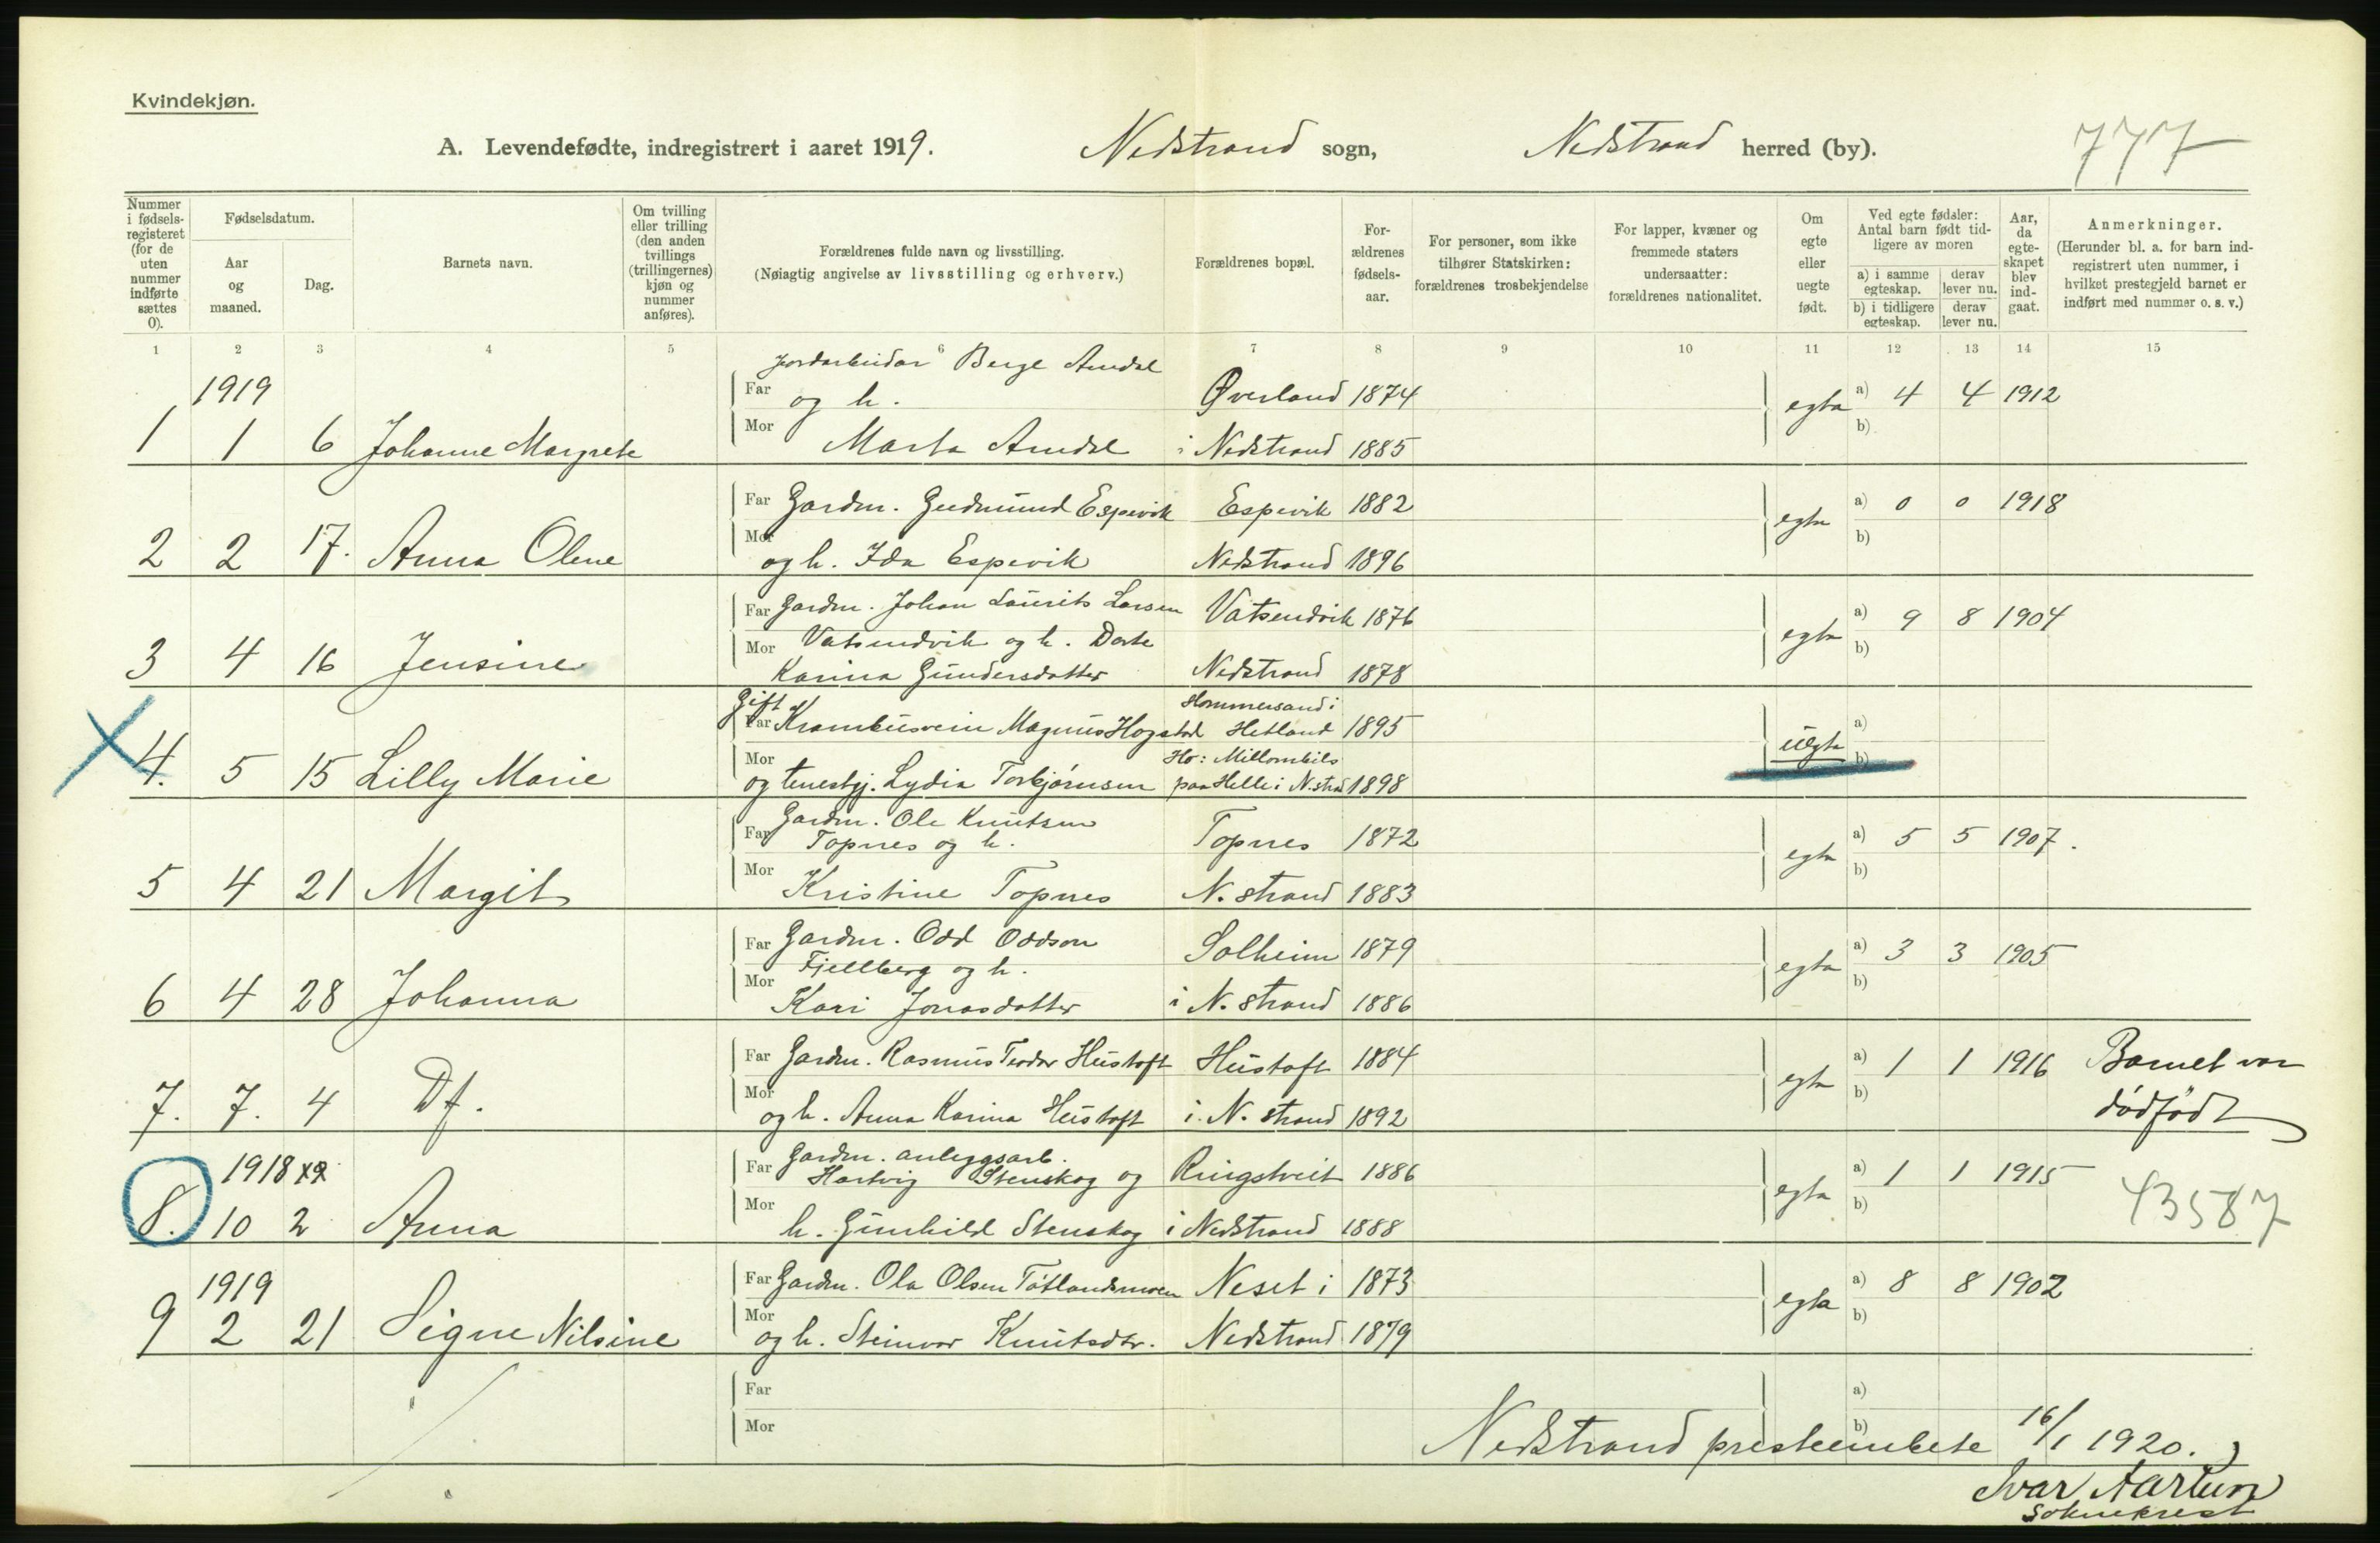 Kvindekjøn.
A. Levendefødte, indregistrert i aaret 1919. Nedstrand sogn, Nedstrand herred (by). 777
Nummer i fødsels-registeret (for de uten nummer indførte sættes 0).
Fødselsdatum.
Aar og maaned.
Dag.
Barnets navn.
Om tvilling eller trilling (den anden tvillings (trillingernes) kjøn og nummer anføres).
Forældrenes fulde navn og livsstilling.
(Nøiagtig angivelse av livsstilling og erhverv.)
Forældrenes bopæl.
For-ældrenes fødsels-aar.
For personer, som ikke tilhører Statskirken: forældrenes trosbekjendelse
For lapper, kvæner og fremmede staters undersaatter: forældrenes nationalitet.
Om egte eller uegte født.
Ved egte fødsler: Antal barn født tid-ligere av moren
a) i samme egteskap. derav lever nu.
b) i tidligere egteskap. derav lever nu.
Aar, da egte-skapet blev ind-gaat.
Anmerkninger.
(Herunder bl. a. for barn ind-registrert uten nummer, i hvilket prestegjeld barnet er indført med nummer o. s. v.)
1 2 3 4 5 6 7 8 9 10 11 12 13 14 15
Jordarbeidar Berge Amdal
1919 Far og h. Øverland 1874 egta a) 4 4 1912
1 1 6 Johanne Margrete Mor Marta Amdal i Nedstrand 1885 b)
Far Gardm. Gudmund Espevik Espevik 1882 egta a) 0 0 1918
2 2 17. Anna Olene Mor og h. Ida Espevik Nedstrand 1896 b)
Far Gardm. Johan Laurits Larsen Vatsendvik 1876 egta a) 9 8 1904
Mor Vatsendvik og h. Dorte b)
3 4 16 Jensine Karina Gundersdatter Nedstrand 1878
Gift Hommersand i
Far Krambusvein Magnus Hogstad Hetland 1895 uegta a)
Mor Ho: Millombils b)
4. 5 15 Lilly Marie og tenestgj. Lydia Torbjørnsen paa Helle i N.strand 1898
Gardm. Ole Knutsen
Far Topnes og h. Topnes 1872 egta a) 5 5 1907.
5 4 21 Margit Mor Kristine Topnes N. strand 1883 b)
Far Gardm. Odd Oddson Solheim 1879 egta a) 3 3 1905
Mor Fjellberg og h. b)
6 4 28 Johanna Kari Jonasdatter i N. strand 1886
Far Gardm. Rasmus Teodor Hustoft Hustoft 1884 egta a) 1 1 1916 Barnet var
7. 7. 4 Df. Mor og h. Anna Karina Hustoft i. N. strand 1892 b) dødfødt
1918 Gardm. anleggsarb.
Far Hartvig Stenskog og Ringstveit 1886 egta a) 1 1 1915
8. 10 2 Anna Mor h. Gunhild Stenskog i Nedstrand 1888 b) 43587
1919 Far Gardm. Ola Olsen Tøtlandsmoen Neset i 1873 egta a) 8 8 1902
9 2 21 Signe Nilsine Mor og h. Steinvor Knutsdtr. Nedstrand 1879 b)
Far a)
Mor b)
Nedstrand presteembete 16/1 1920.
Ivar Aartun
Sokneprest